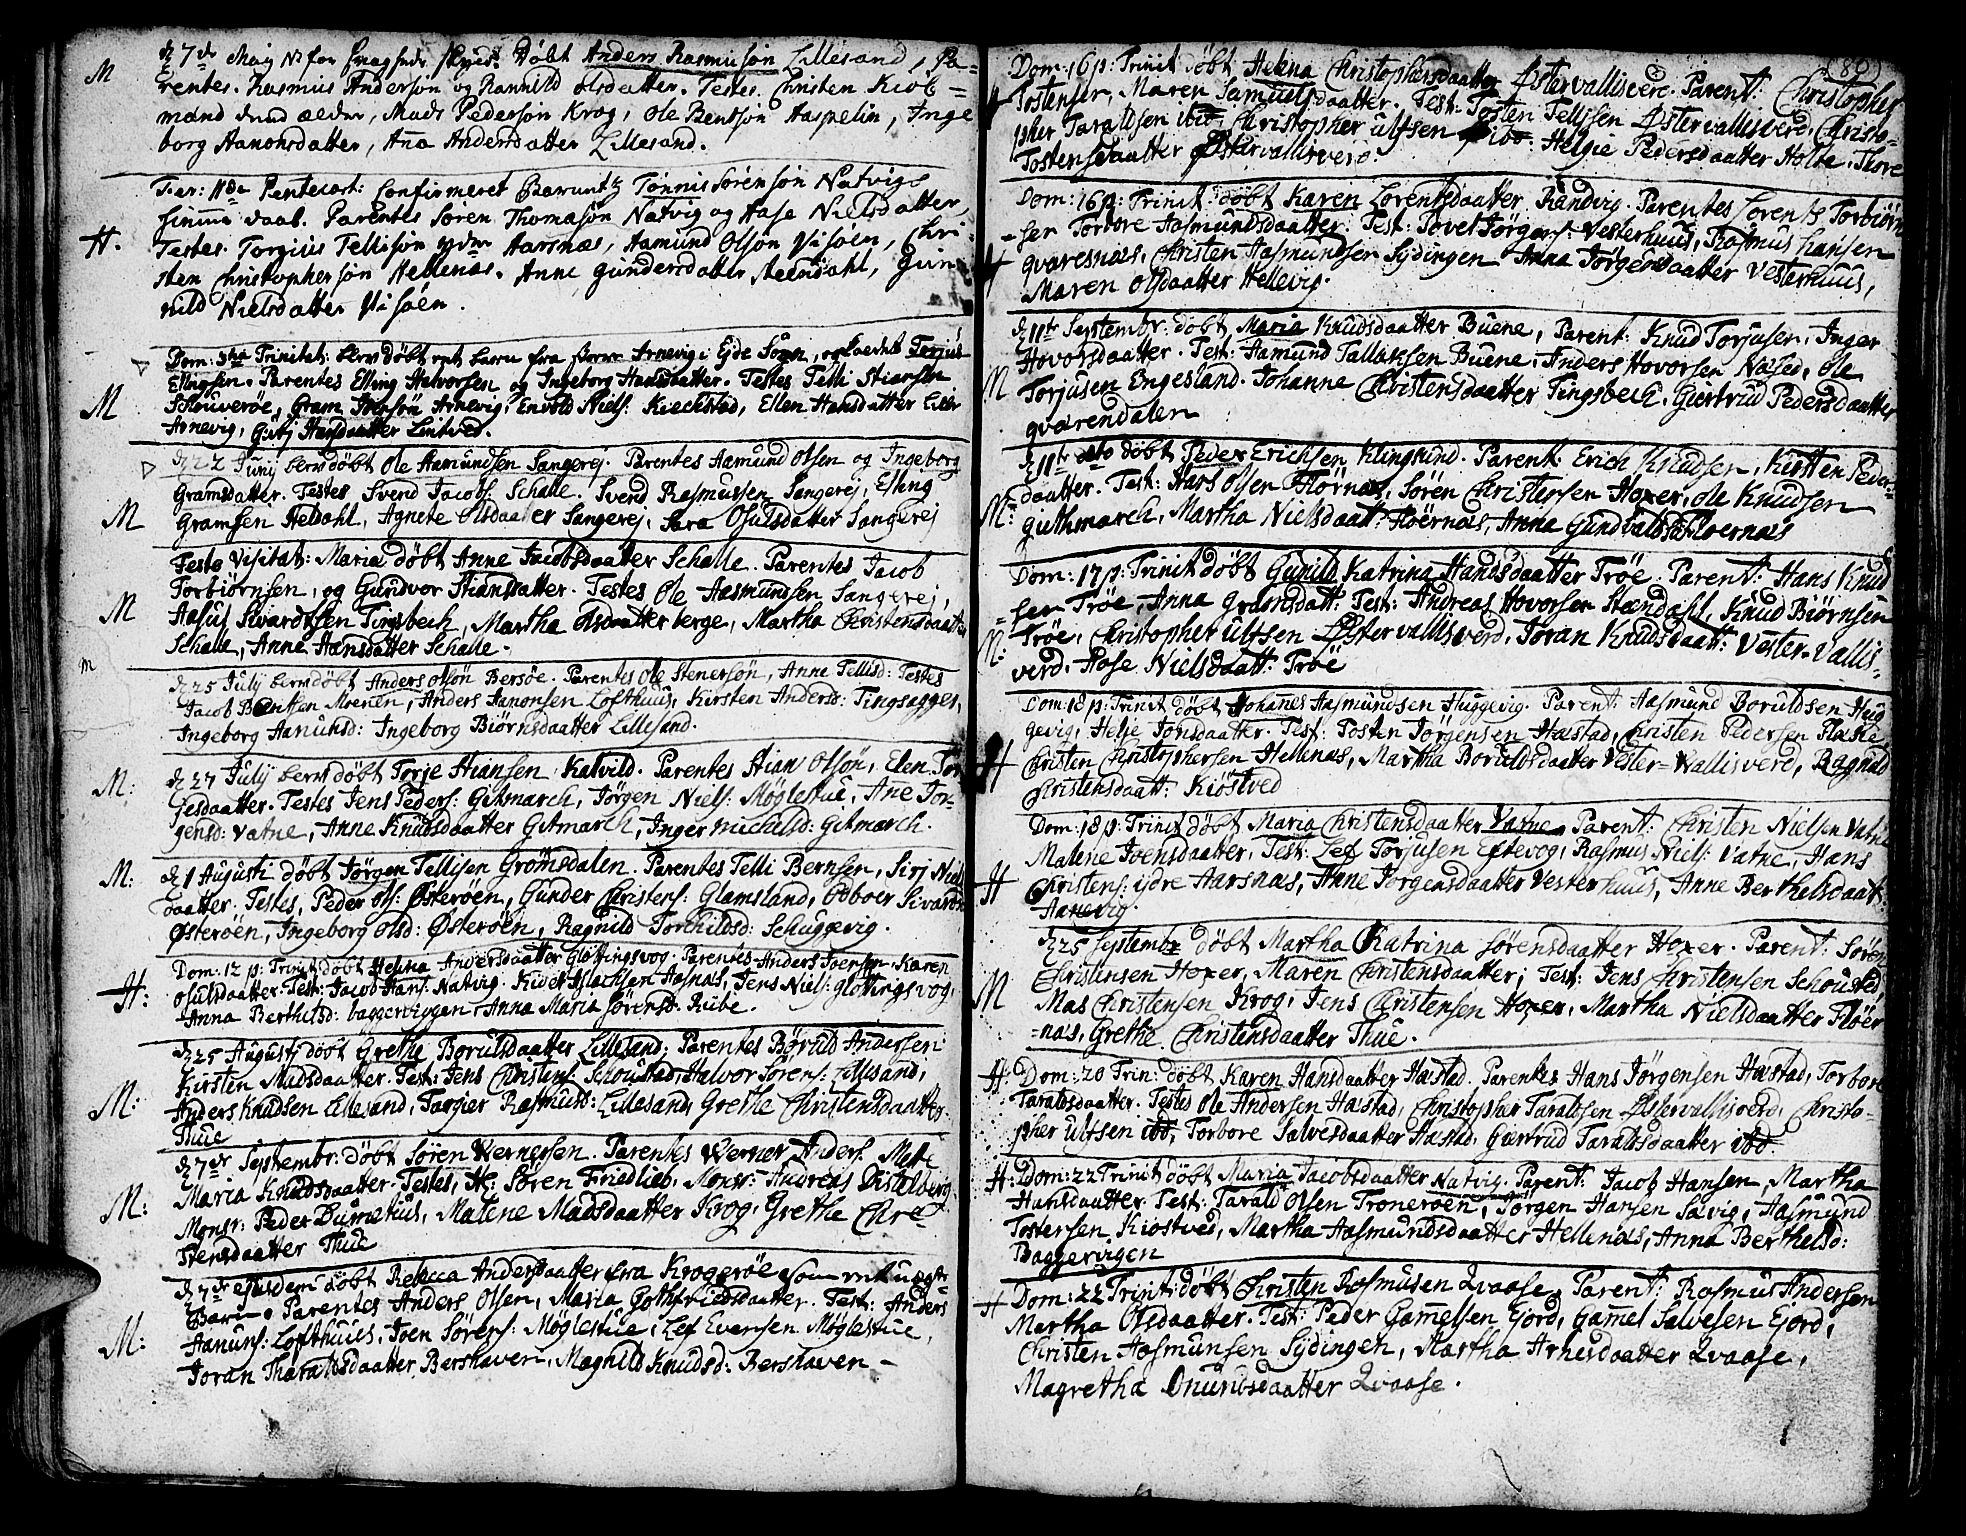 M
d 7de Maij döbt Anders Rasmusön Lillesand, Pa-
rentes. Rasmus Andersön og Rannild olsdatter. Testes. Christen Kiob-
mand ældre, Mads Pedersön Krog, Ole Bendsön Aaspelin, Inge
borg Aanonsdatter, Ana Andersdatter Lillesand.
H.
Fer: IIda Pentecost: Confirmeret Tönnis Sörensön Natvigs
daab. Parentes Sören Thomasön Natvig og Aase Nielsdatter,
Testes. Torgius Tellisön Aarsnæs, Aamund Olsön Visöen, Chri-
sten Christophersön Hellenæs. Anne Gundersdatter Steendahl, Gun-
nild Nielsdatter Visöen.
M
Dom: 3tia Trinitat: döbt et barn fra Arnevig i Ejde Sogn, Torjus
Ellingsen. Parentes Elling Halvorsen og Ingeborg Hansdaatter. Testes Telli Stiansen
Schouveröe, Gram Arnevig, Envold Niels: Kieckstad, Ellen Hansdatter
Arnevig, Hansdaatter Lintved.
M
d 22 Junij döbt Ole Aamundsen Sangerej. Parentes Aamund Olsen og Ingeborg
Gramsdatter. Testes Svend Jacobs: Schalle. Svend Rasmussen Sangerej, Elling
Gramsen Heldahl, Agnete Olsdaatter Sangerej, Sara Osulsdatter Sangerej
M
Festo Visitat: Mariæ döbt Anne Jacobsdaatter Schalle. Parentes Jacob
Torbiörnsen, og Gundvor Stiansdatter. Testes Ole Aasmundsen Sangerej,
Aasul Sivardtsen Tingsbech, Martha olsdaatter berge, Martha Christensdaatter
Schalle, Anne Hansdatter Schalle.
m
d 25 July döbt Anders olsön Bersöe. Parentes Ole Stenersön, Anna Tellisd: Testes
Jacob Moenen, Anders Aanonsen Lofthuus, Kirsten Andersd: Tingsagger,
Ingeborg Aanunsd: Ingeborg Biörnsdaatter Lillesand.
M:
d 27 July döbt Torje Stiansen Katvild. Parentes Stian Olsön, Elen Tor
jesdaatter. Testes Jens Peders: Gitmarch, Jörgen Niels: Möglestue, Ane Jor-
gensd: Vatne, Anne Knudsdaatter Gitmarch, Inger Michelsd: Gitmarch.
M:
d 1 Augusti döbt Jörgen Tellisen Grömsdalen. Parentes Telli Bernsen, Sirj Niels
daatter. Testes, Peder ols: Österöen, Gunder Christens: Glamsland, Odboer Sivards
Österöen, Ingeborg olsd: Österöen, Ragnild Torchildsd: Schuggevig.
H:
Dom: 12 p: Trinit döbt Helena Andersdaatter Glottingsvog. Parentes Anders Joensen Karen
osulsdaatter. Test: Jacob Hans: Natvig. Aasnæs, Jens Niels: glottingsvog,
Anna Berthelsd: baggerviggen Anna Maria Sörensd: Rübe.
M:
d 25 Augustj döbt Grethe Borulsdaatter Lillesand; Parentes Börud Andersen
Kirsten Madsdaatter. Test: Jens Christens Schoustad, Halvor Sörens: Lillesand,
Anders Knudsen Lillesand, Taagier Rasmusd: Lillesand, Grethe Christensdaatter
Thue
M:
d 7de Septembr: döbt Sören Wernersen. Parentes Werner Anders Mette
Maria Knudsdaatter. Testes, Hr: Sören Friedlieb, Monsr: Andreas Distelberg
Monsr: Peder Dumetius, Malene Madsdaatter Krog, Grethe Chri-
stensdaatter Thue
M:
d 7de ejusdem döbt Rebecca Andersdaatter fra Krogeröe som
Parentes Anders Olsen, Maria Gothfriedsdaatter. Test: Anders
Aanuns: Lofthuus, Joen Sörens: Möglestue, Lef Evensen Möglestue,
Joran Tharaldsdaatter Bershaven, Magnild Knudsd: Bershaven
(80)
H
Dom: 16 p: Trinit döbt Helena Christophersdaatter Östervallisvere. Parent: Christopher
Tostenser, Maren Samuelsdaatter. Test: Tosten Tellisen Östervallisverd, Christo-
pher Taraldsen ibid, Christopher ulfsen ibd: Helgie Pedersdaatter Holte, Thore
Tostensdaatter Östervallisverd.
H
Dom: 16 p: Trinit döbt Karen Lorentsdaatter, Randvig. Parentes Lorents Torbiörn
sen Torbore Aasmundsdaatter. Test: Tovel Jörgens: Vesterhuus, Rasmus Hansen
qvaresnæs, Christen Aasmundsen Sydingen Anna Jörgensdaatter Vesterhuus,
Maren Olsdaatter Hellevig.
M
d 11te Septembr: döbt Maria Knudsdaatter Buene, Parent: Knud Torjusen, Inger
Hovorsdaatter. Test: Aamund Tallaksen Buene, Anders Hovorsen Naesed, Ole
Torjusen Engesland. Johanne Christensdaatter Tingsbech. Giertrud Pedersdaatter
qvarendalen
M:
d 11te dito döbt Peder Erichsen Klingsund. Parent: Erich Knudsen, Kirsten Peders-
daatter. Test: Hans olsen Flörnæs, Sören Christensen Hoxer, ole Knudsen
Guthmarch, Martha Nielsdaatt: Floernæs, Anna Floernæs
M:
Dom: 17 p: Trinit döbt Gunild Katrina Handsdaatter Tröe. Parent: Hans Knud
sen Tröe, Anna gramsdatt: Test: Andreas Hovorsen Stændahl, Knud Biörnsen
Tröe, Christopher ulfsen Östervallisverd, Joran Knudsdaatt: Vester-Vallis-
verd, Aase Nielsdaatt: Tröe
H
Dom: 18 p: Trinit döbt Johanes Aasmundsen Huggevig. Parent: Aasmund Borulsen Hug
gevig, Helje Jonsdaatter. Test: Tosten Jörgensen Hæstad, Christen Pedersen
Christen Christophersen Hellenæs, Martha Borulsdaatter Vester-Wallisverd, Ragnild
Christensdaatt: Kiöstved
H
Dom: 18 p: Trinit döbt Maria Christensdaatter Vatne. Parent: Christen Nielsen Vatne
Malene Joensdaatter, Test: Lef Torjusen Eftevog, Rasmus Niels: Vatne, Hans
Christens: ydre Aarsnæs, Anne Jörgensdaatter Vesterhuus, Anne Berthelsdaatt:
Aanevig.
M
d 25 Septembr döbt Martha Katrina Sörensdaatter Hoxer. Parent: Sören
Christensen Hoxer, Maren Christensdaatter; Test: Jens Christensen Schousted,
Mas Christensen Krog, Jens Christensen Hoxer, Martha Nielsdaatter Flöer
-næs, Grethe Christensdaatter Thue.
H
Dom: 20 Trin: döbt Karen Hansdaatter Hæstad. Parentes Hans Jörgensen Hæstad, Torbore
Taraldsdaatter. Testes Ole Andersen Hæstad, Christopher Taraldsen Östervallisverd, Christo-
pher ulfsen ibd, Torbore Salvesdaatter Hæstad, Giertrud Taraldsdaatter ibd.
H:
Dom: 22 Trinit döbt Maria Jacobsdaatter Natvig. Parent: Jacob Hansen, Martha
Hansdaatter. Test: Tarald Olsen Troneröen, Jörgen Hansen Salvig, Aasmund
Tostersen Kiöstved, Martha Aasmundsdaatter Hellenæs, Anna Berthelsd:
Baggervigen
H
Dom: 22 Trinit: döbt Christen Rasmusen Qvaase. Parent: Rasmus Andersen
Martha Olsdaatter. Test: Peder Gamelsen Ejord, Gamel Salvesen Ejord,
Christen Aasmunsen Sydingen, Martha Arnesdaatter Qvaase,
Magretha Onundsdaatter Qvaase.